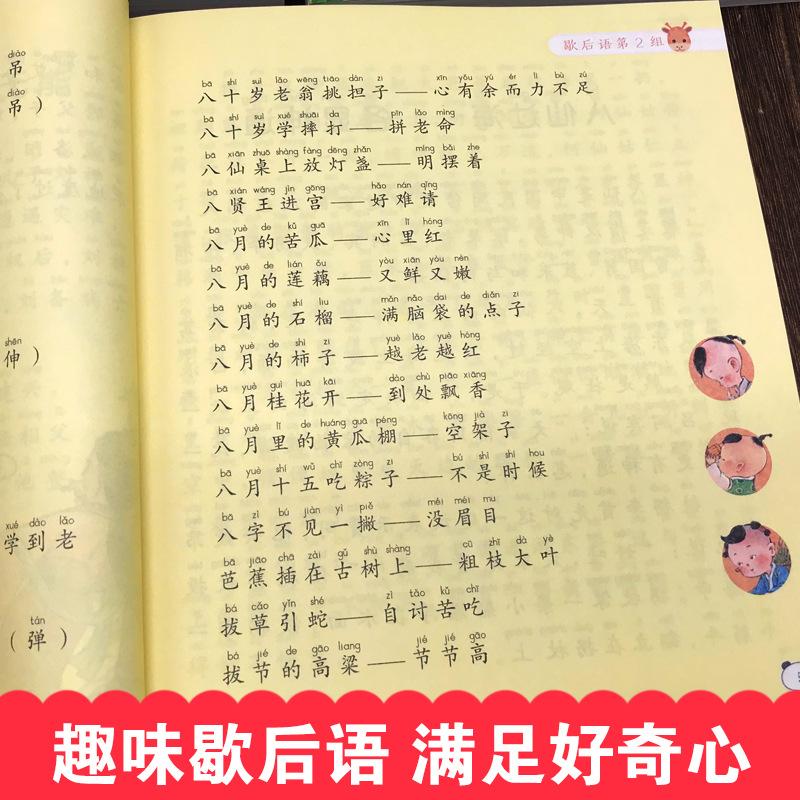 diào
吊
diào
吊）
shēn
伸）
xué dào lǎo
学到老
tán
（弹）
歇后语第2组
bā shí suì lǎo wēng tiāo dàn zi xīn yǒu yú ér lì bù zú
八十岁老翁挑担子——心有余而力不足
bā shí suì xué shuāi da pīn lǎo mìng
八十岁学摔打——拼老命
bā xiān zhuō shàng fàng dēng zhǎn míng bǎi zhe
八仙桌上放灯盏——明摆着
bā xián wáng jìn gōng hǎo nán qǐng
八贤王进宫——好难请
bā yuè de kǔ guā xīn lǐ hóng
八月的苦瓜——心里红
bā yuè de lián ǒu yòu xiān yòu nèn
八月的莲藕——又鲜又嫩
bā yuè de shí liu mǎn nǎo dai de diǎn zi
八月的石榴——满脑袋的点子
bā yuè de shì zi yuè lǎo yuè hóng
八月的柿子——越老越红
bā yuè guì huā kāi dào chù piāo xiāng
八月桂花开——到处飘香
bā yuè lǐ de huáng guā péng kōng jià zi
八月里的黄瓜棚——空架子
bā yuè shí wǔ chī zòng zi bú shì shí hou
八月十五吃粽子——不是时候
bā zì bú jiàn yì piě méi méi mu
八字不见一撇——没眉目
bā jiāo chā zài gǔ shù shàng cū zhī dà yè
芭蕉插在古树上——粗枝大叶
bá cǎo yǐn shé zì tǎo kǔ chī
拔草引蛇——自讨苦吃
bá jié de gāo liang jié jié gāo
拔节的高粱——节节高
趣味歇后语 满足好奇心